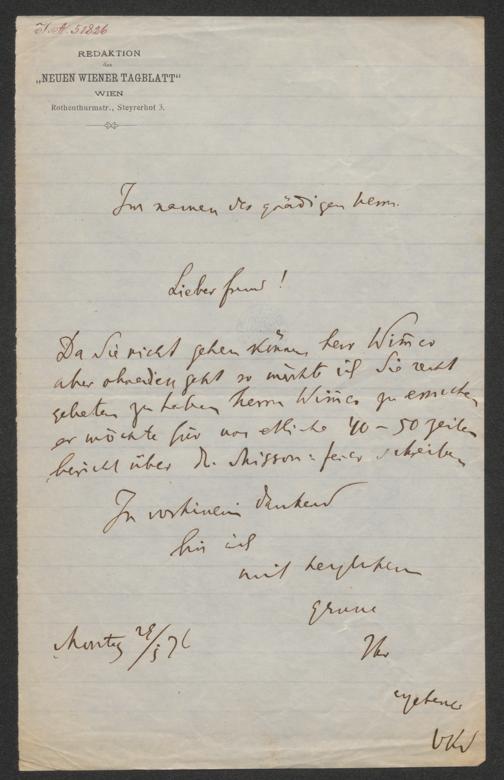 I. N. 51826
REDAKTION
des
„NEUEN WIENER TAGBLATT“
WIEN
Rothenthurmstr., Steyrerhof 3.
Im namen des gnädigen herrn.
Lieber freund!
Da Sie nicht gehen können, herr Wim̄er
aber ohnedies geht so möchte ich Sie recht
gebeten zu haben Herrn Wim̄er zu ersuchen
er möchte für uns etliche 40–50 zeilen
bericht über die feier schreiben
Im vorhinein dankend
bin ich
mit herzlichem
grusse
Ihr
ergebener
Montag 29/5 76